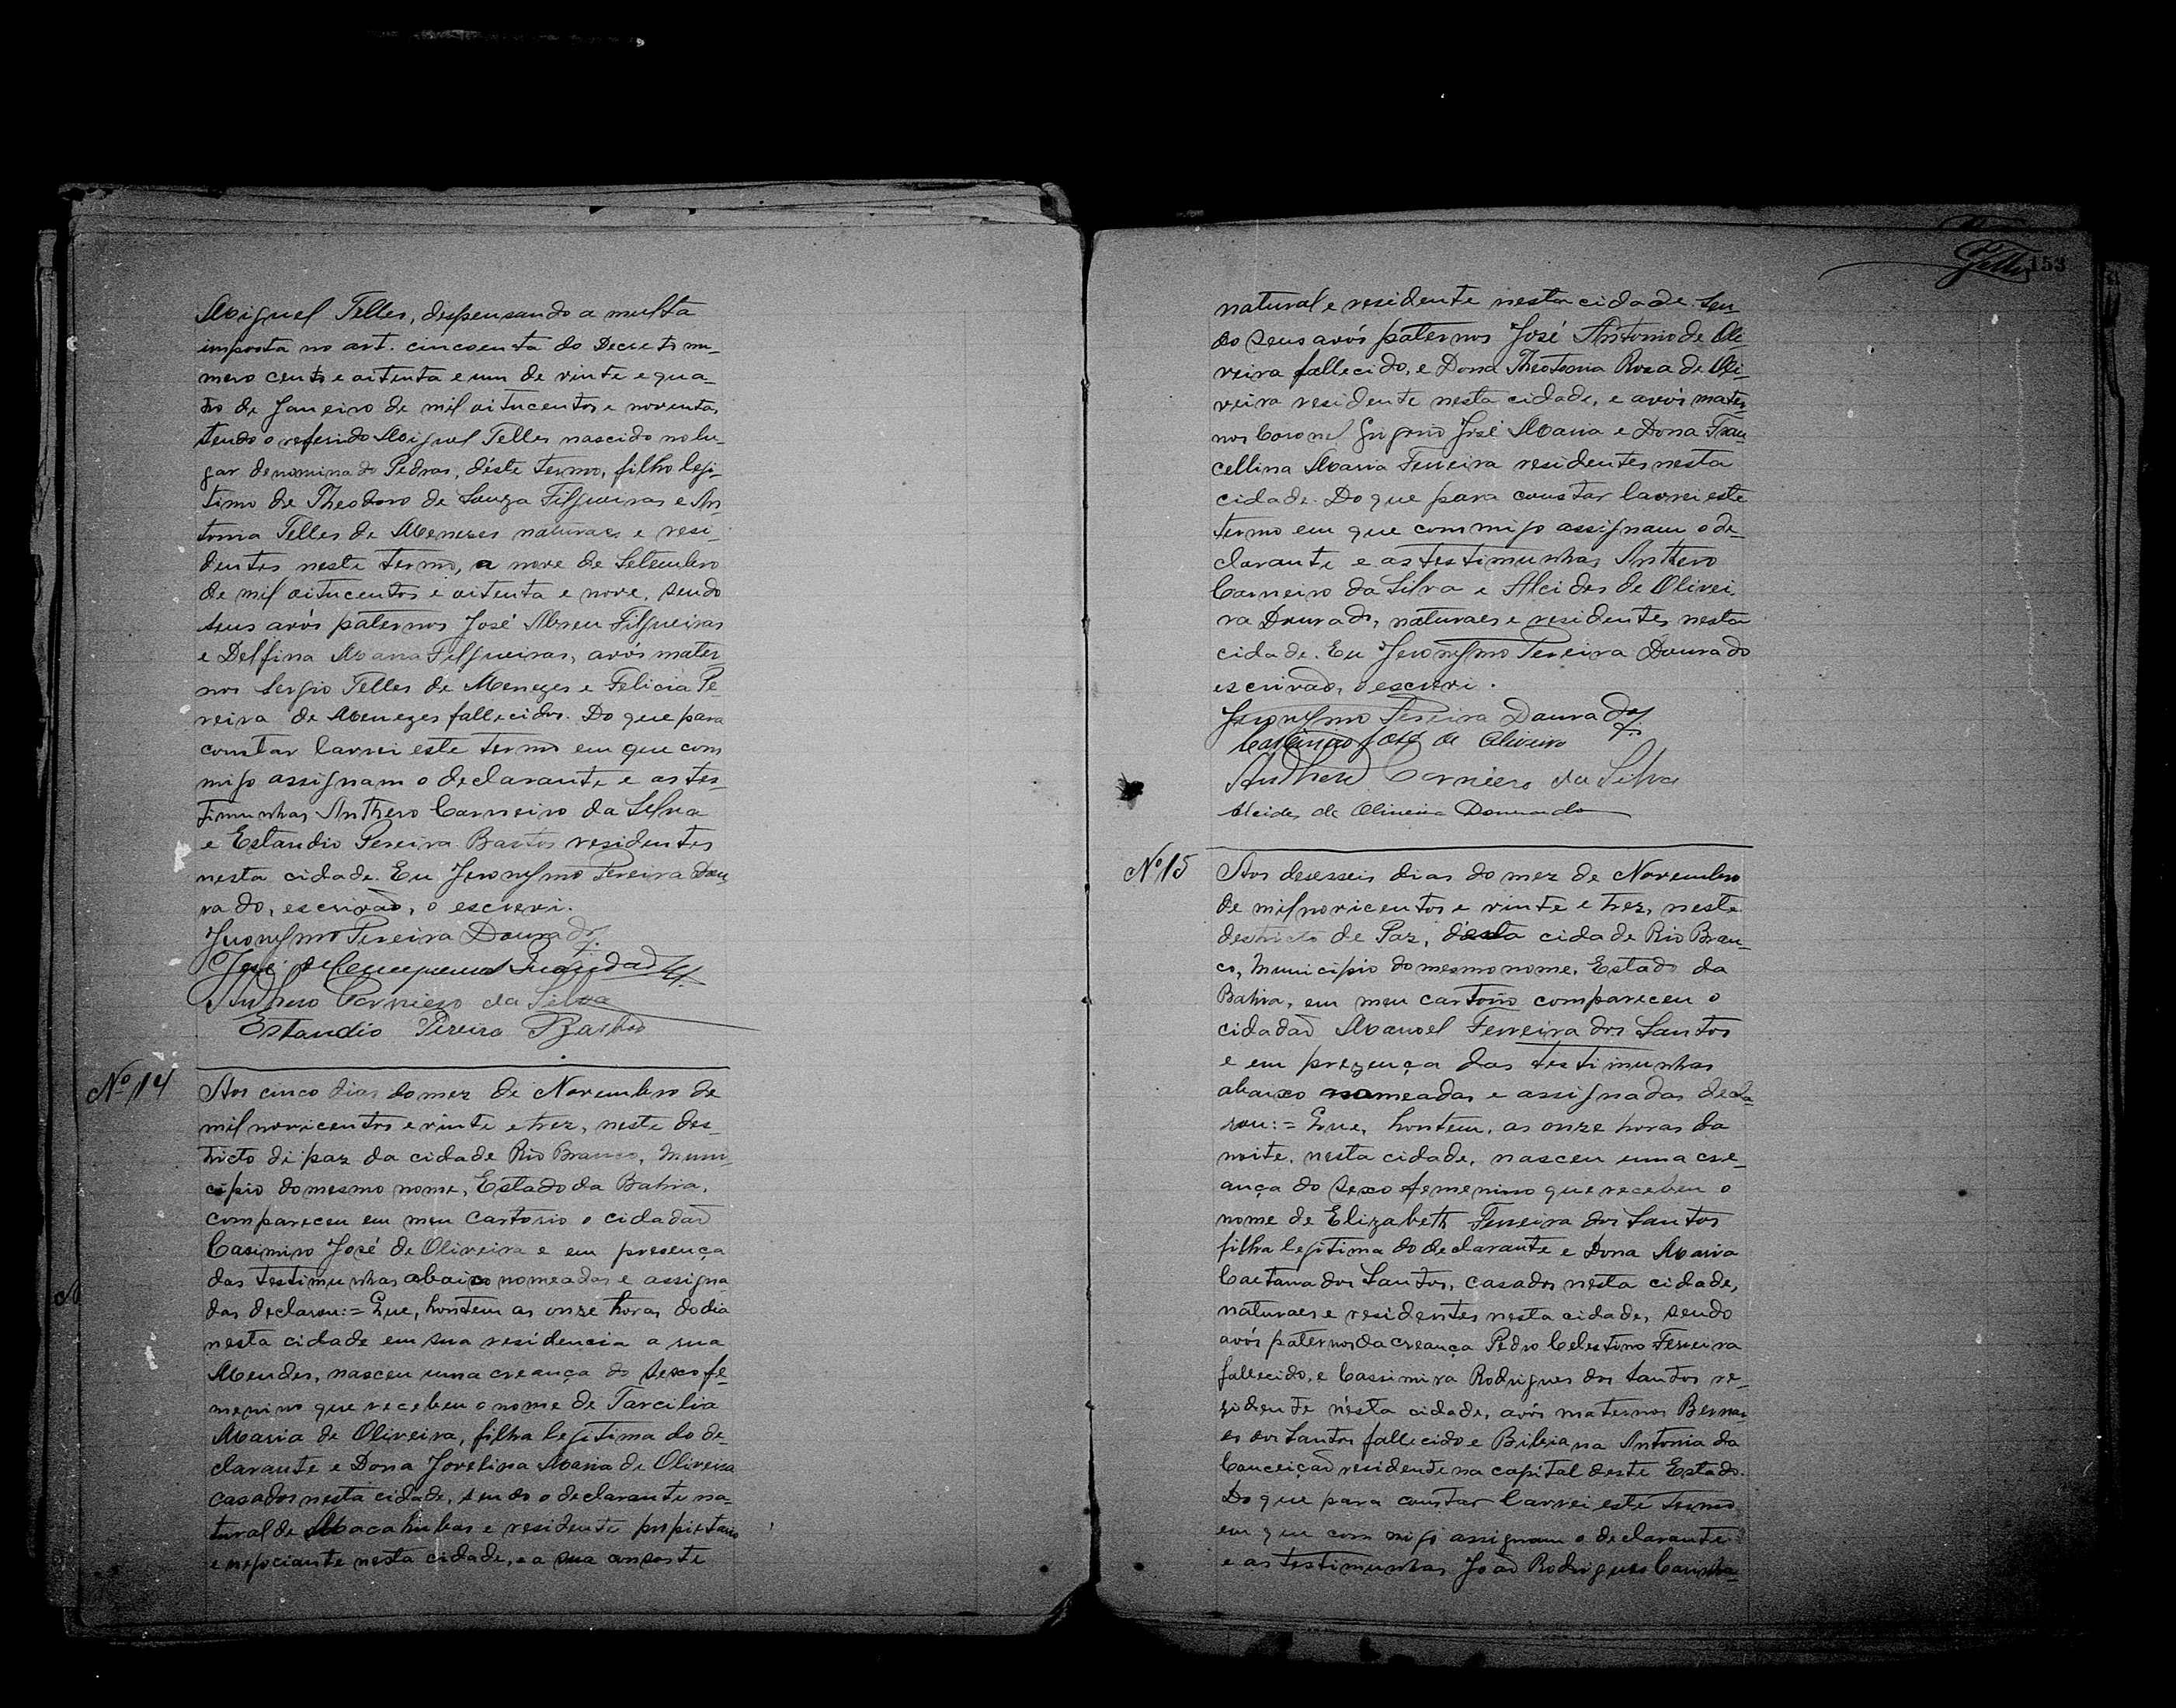 Miguel Telles, dispensando a multa
imposta no art. cincoenta do Decreto nu-
mero cento e oitenta e um de vinte e qua-
tro de Janeiro de mil oitucentos e noventa,
tendo o referido Miguel Telles nascido no lu-
gar denominado Pedras, déste termo, filho legi-
timo de Theodoro de Souza Filgueiras e An-
tonia Telles de Menezes naturaes e resi-
dentes neste termo, a nove de Setembro
de mil oitucentos e oitenta e nove, sendo
seus avós paternos José Abreu Filgueiras
e Delfina Maria Filgueiras, avós mater-
nos Sergio Telles de Menezes e Felicia Pe-
reira de Menezes fallecidos. Do que para
constar lavrei este termo em que com
migo assignam o declarante e as tes-
timunhas Anthero Carneiro da Silva
e Estandio Pereira Bastos residentes
nesta cidade. Eu Jeronymo Pereira Dou-
rado, escrivão, o escrevi.
Jeronymo Pereira Dourado
José de
Anthero Carneiro da Silva
Estandio Pereira Bastos
Nº 14
Aos cinco dias do mez de Novembro de
mil novicentos e vinte e trez, neste des-
tricto de paz da cidade Rio Branco, Muni-
cipio do mesmo nome, Estado da Bahia,
compareceu em meu Cartorio o cidadão
Casimiro José de Oliveira e em presença
das testimunhas abaixo nomeadas e assigna-
das declarou:= Que, hontem as onze horas do dia
nesta cidade em sua residencia a rua
Mendes, nasceu uma creança do sexo fe-
menino que recebeu o nome de Tarcilia
Maria de Oliveira, filha legitima do de-
clarante e Dona Jovelina Maria de Oliveira
casados nesta cidade, sendo o declarante na-
tural de Macahubas e residente propietario
e negociante nesta cidade, e a sua consorte
153
natural e residente nesta cidade. Sen-
do seus avós paternos José Antonio de Oli-
veira fallecido, e Dona Theotonia Rosa de Oli-
veira residente nesta cidade, e avós mater-
nos Coronel José Maria e Dona Fran-
cellina Maria Ferreira residentes nesta
cidade. Do que para constar lavrei este
termo em que commigo assignam o de-
clarante e as testimunhas Anthero
Carneiro da Silva e Alcides de Olivei-
ra Dourado, naturaes e residentes nesta
cidade. Eu Jeronymo Pereira Dourado
escrivão, o escrevi.
Jeronymo Pereira Dourado
Casimiro José de Oliveira
Anthero Carneiro da Silva
Alcides de Oliveira Dourado
Nº 15
Aos desesseis dias do mez de Novembro
de mil novicentos e vinte e trez, neste
destricto de Paz, désta cidade Rio Bran-
co, Municipio do mesmo nome, Estado da
Bahia, em meu cartorio compareceu o
cidadão Manoel Ferreira dos Santos
e em prezença das testimunhas
abaixo nomeadas e assignadas decla-
rou:= Que, hontem, as onze horas da
noite, nesta cidade, nasceu uma cre-
ança do sexo femenino que recebeu o
nome de Elizabeth Ferreira dos Santos
filha legitima do declarante e Dona Maria
Caetana dos Santos, casados nesta cidade,
naturaes e residentes nesta cidade, sendo
avós paternos da creança Pedro Celestino Ferreira
fallecido, e Cassimira Rodrigues dos Santos re-
zidente nésta cidade, avós maternos
dos Santos fallecido e Bibiana Antonia da
Conceição residente na capital deste Estado.
Do que para constar lavrei este termo
em que com migo assignam o declarante
e as testimunhas João Rodrigues